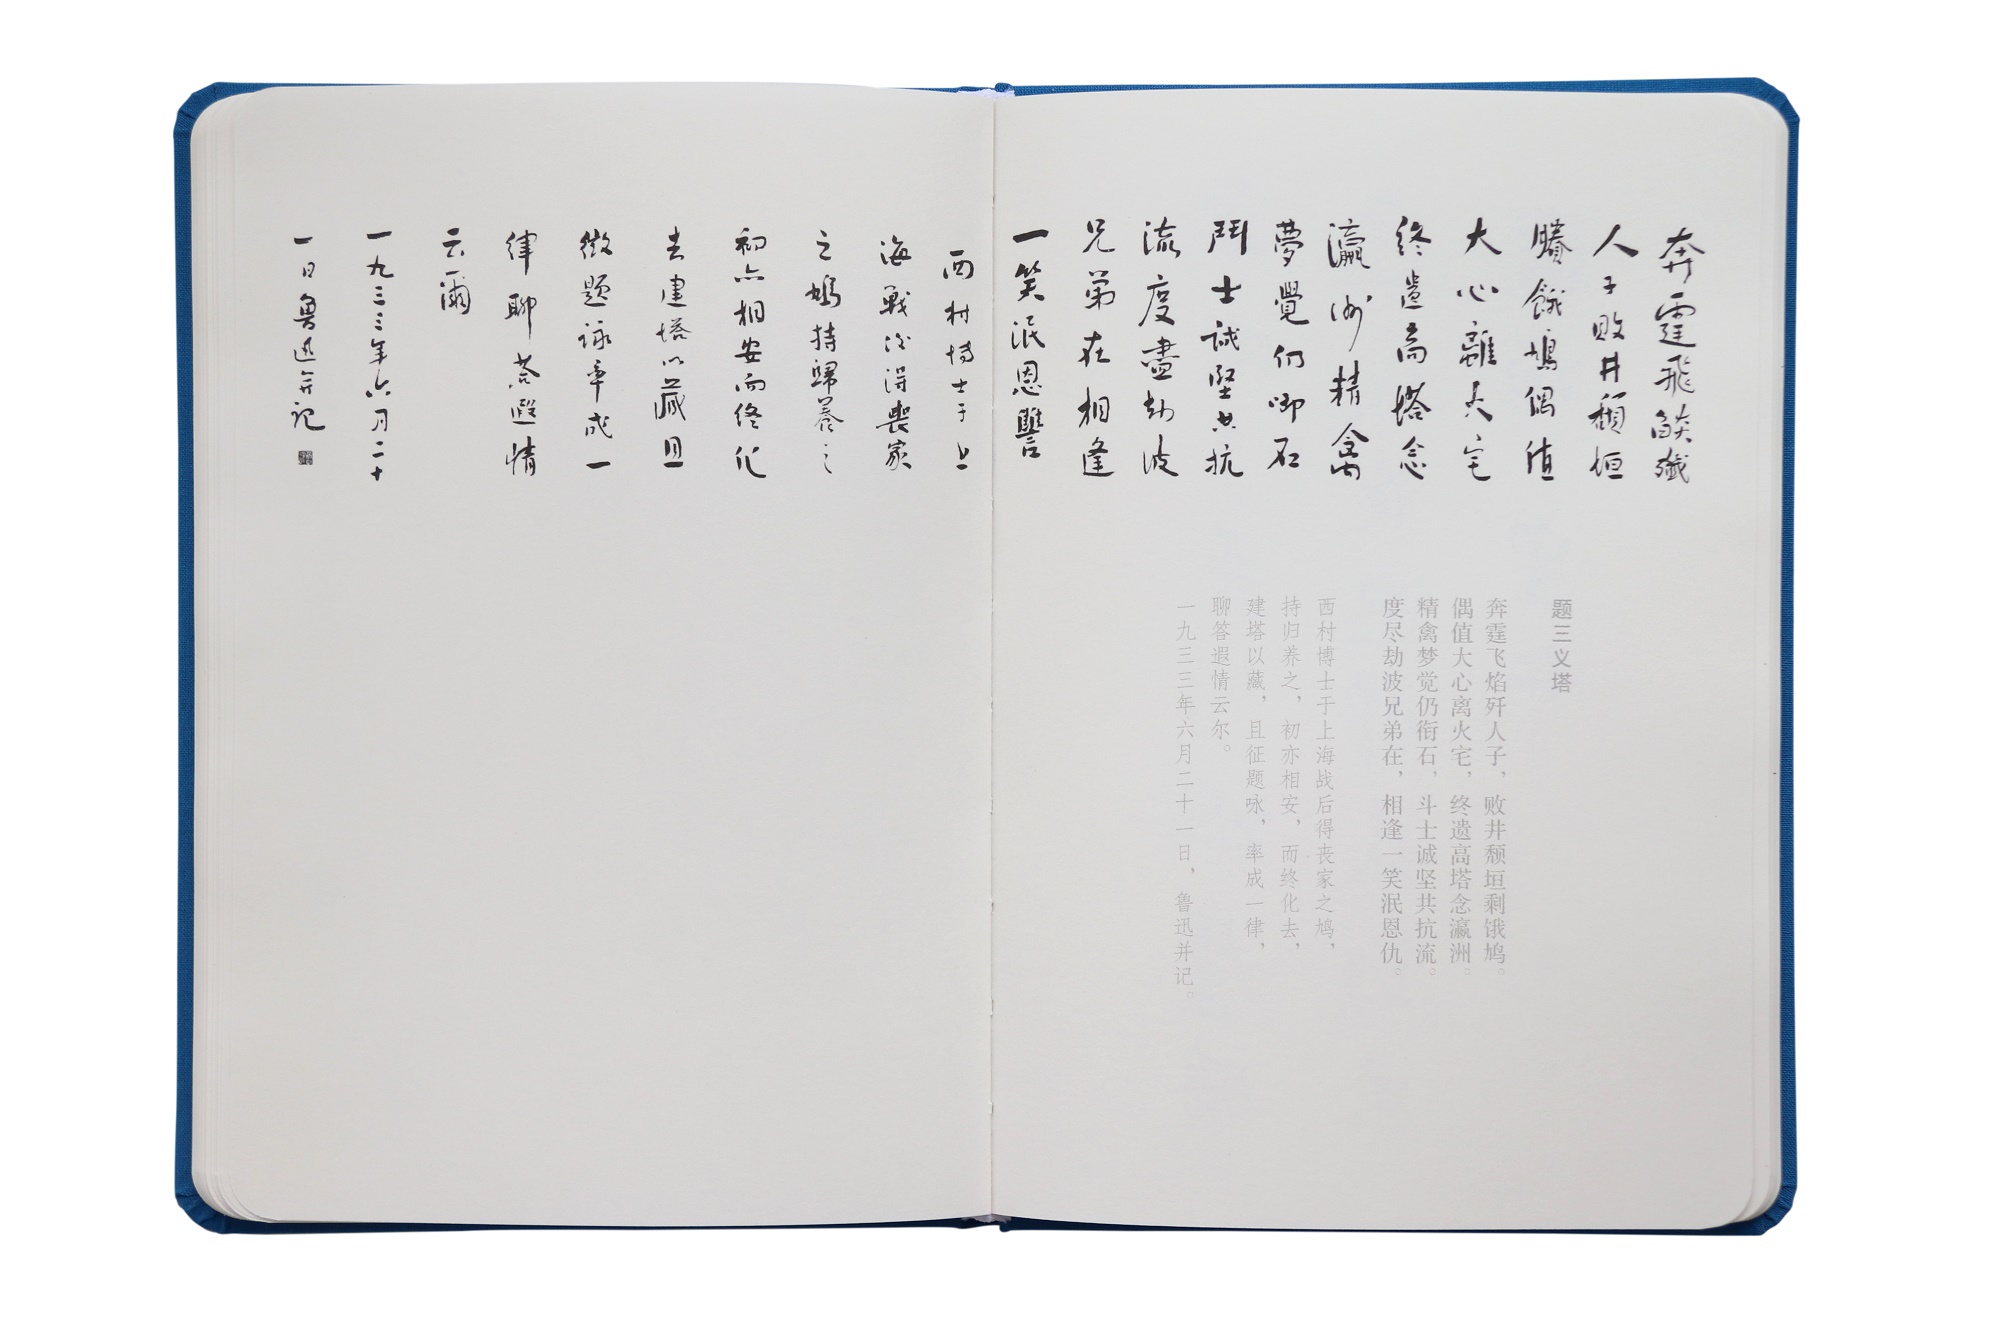 奔霆飛燄殲
人子敗井頽垣
賸餓鳩偶值
大心離火宅
終遺高塔念
瀛洲精禽
夢覺仍啣石
鬥士诚堅共抗
流度盡劫波
兄弟在相逢
一笑泯恩讐
西村博士于上
海戰後得喪家
之鳩持歸養之
初亦相安而終化
去建塔以藏且
徵題詠率成一
律聊荅遐情
云爾
一九三三年六月二十
一日魯迅并记
题三义塔
奔霆飞焰歼人子，败井颓垣剩饿鸠。
偶值大心离火宅，终遗高塔念瀛洲。
精禽梦觉仍衔石，斗士诚坚共抗流。
度尽劫波兄弟在，相逢一笑泯恩仇。
西村博士于上海战后得丧家之鸠，
持归养之，初亦相安，而终化去，
建塔以藏，且征题咏，率成一律，
聊答遐情云尔。
一九三三年六月二十一日，鲁迅并记。